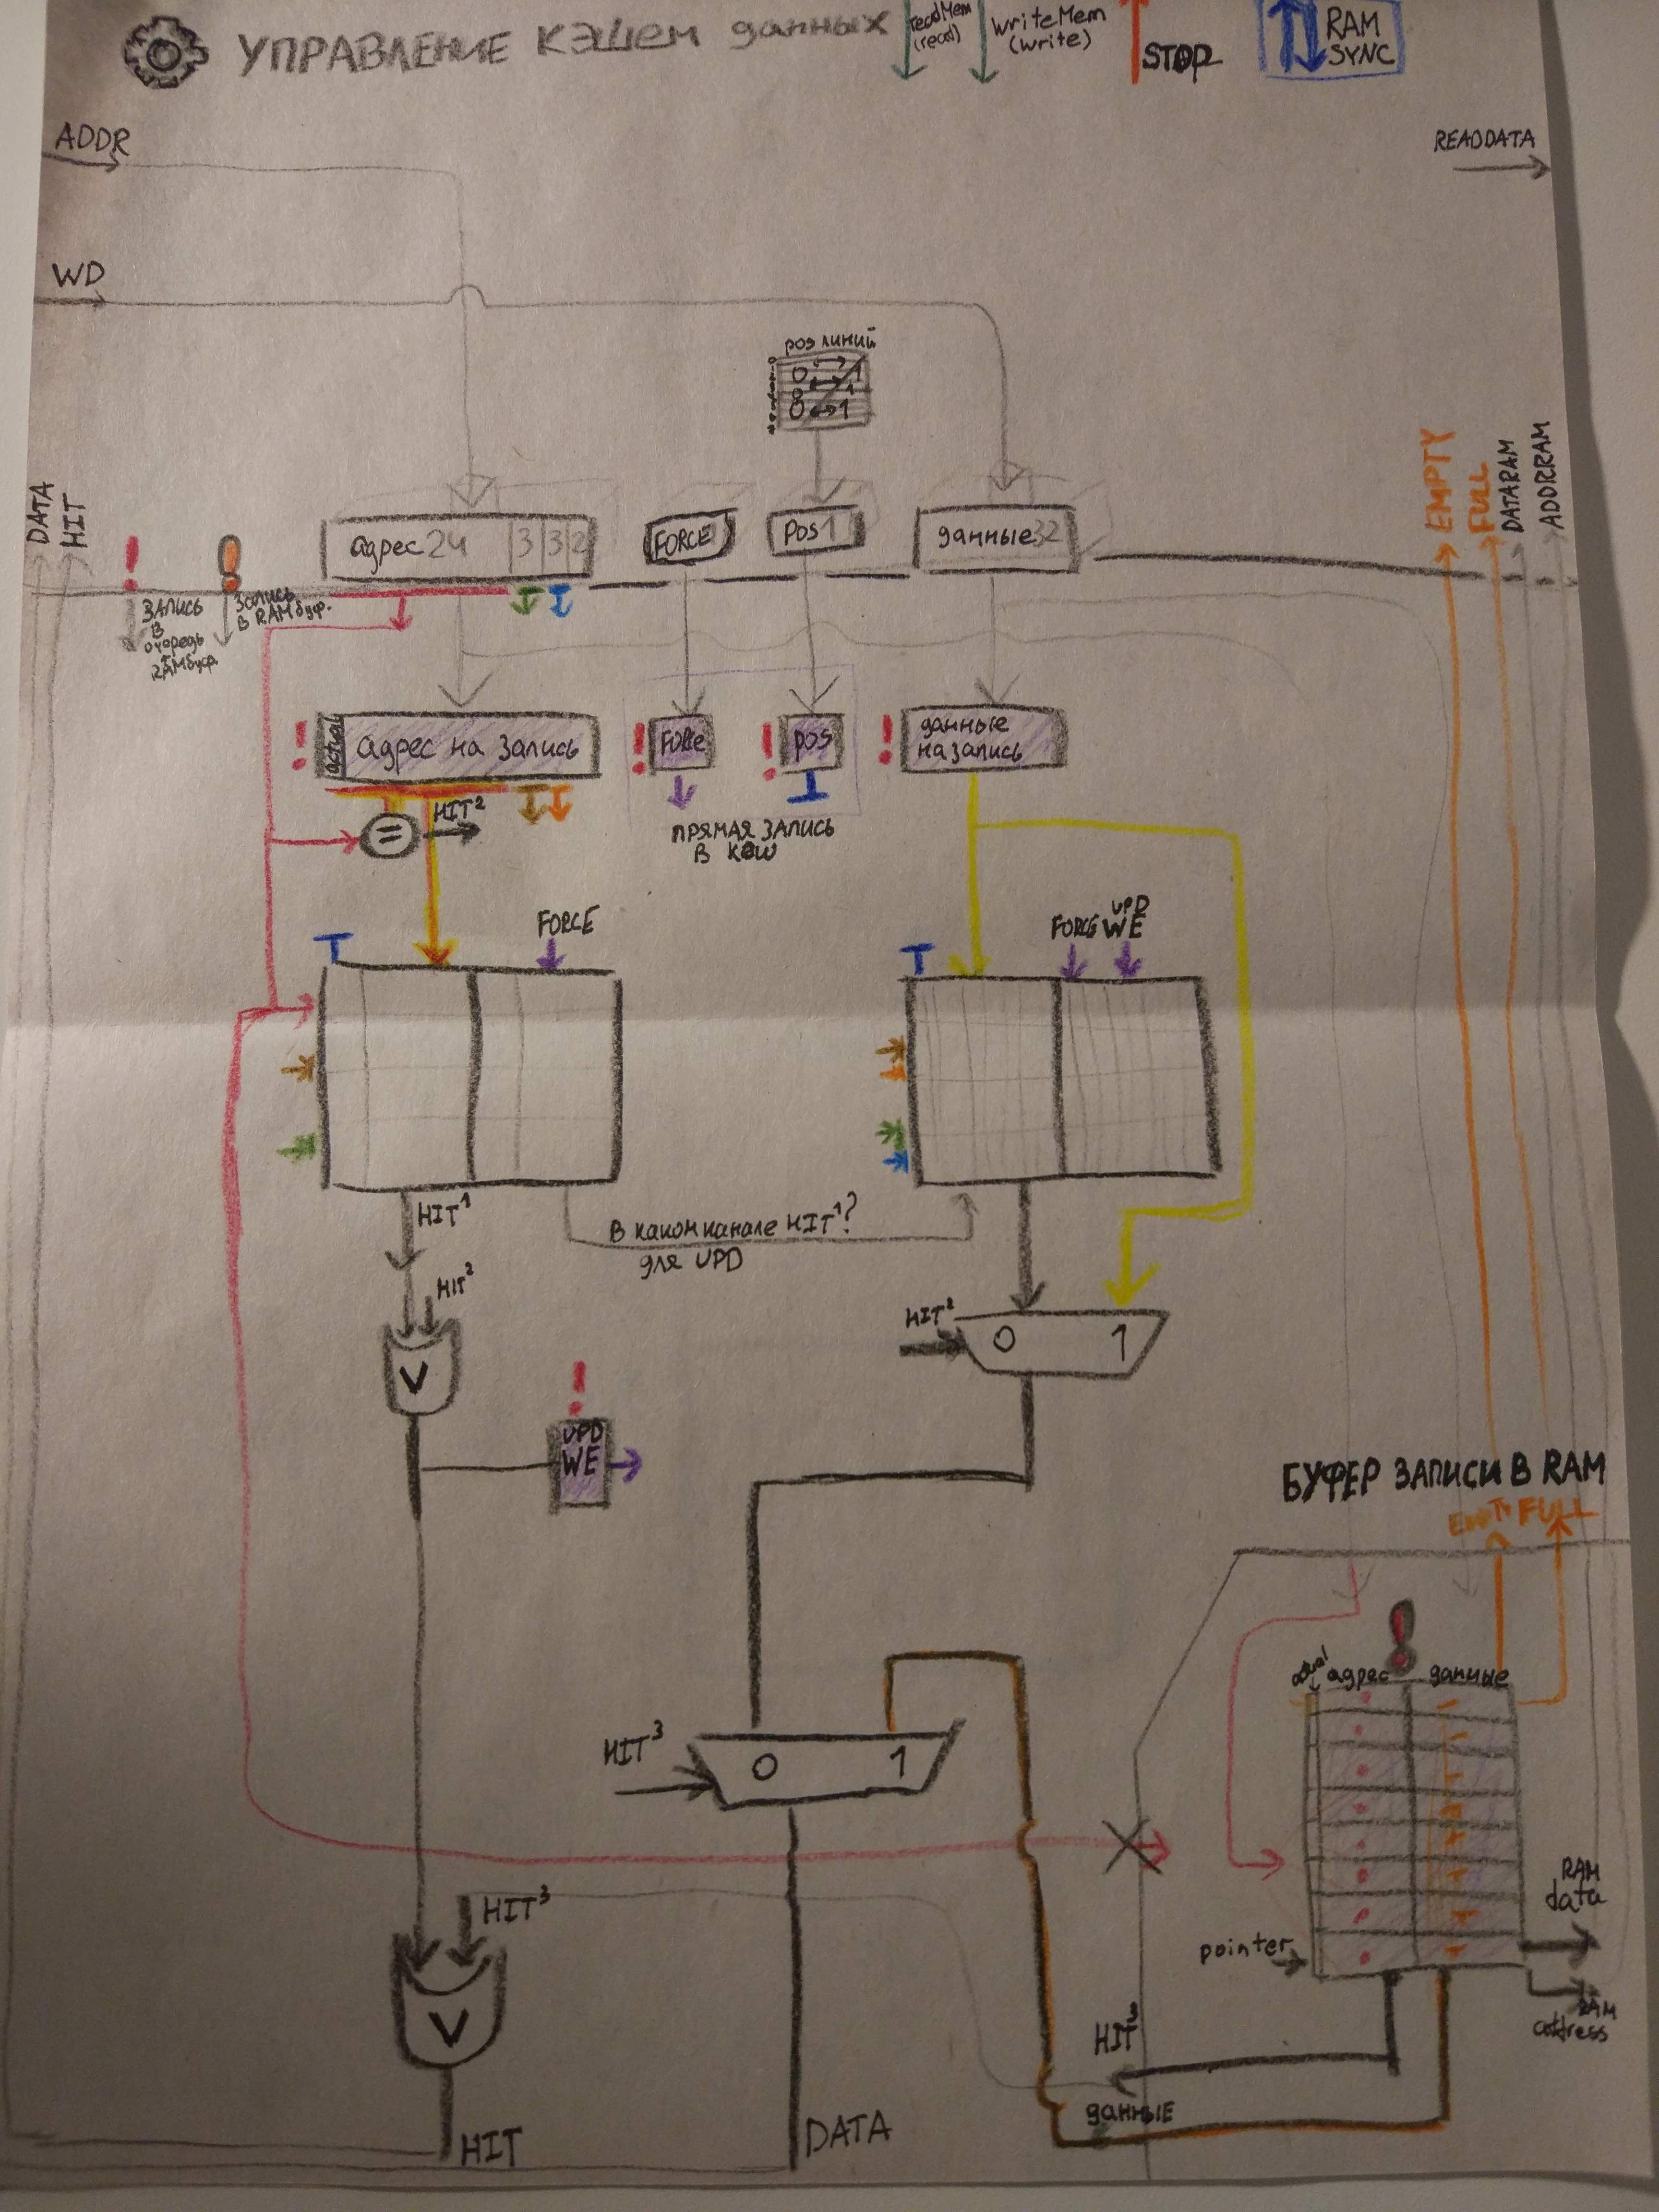 УПРАВЛЕНИЕ кэшем данных
readMem
(read)
WriteMem
(write)
STOP
RAM
SYNC
ADDR
READDATA
WD
роз линий
0 1
0 1
0 1
DATA
HIT
EMPTY
FULL
DATARAM
ADDRRAM
адрес 24 3 3 2
FORCE
POS 1
данные 32
!
ЗАПИСЬ
В
очередь
RAM буф.
!
Запись
в RAM буф.
!
actual
адрес на запись
!
Force
!
POS
!
данные
на запись
=
HIT²
ПРЯМАЯ ЗАПИСЬ
В КЭШ
FORCE
FORCE
UPD
WE
HIT¹
В каком канале HIT¹?
для UPD
HIT²
V
HIT²
0 1
!
UPD
WE
БУФЕР ЗАПИСИ В RAM
EMPTY FULL
!
actual
адрес данные
HIT³
0 1
RAM
data
HIT³
pointer
V
RAM
address
HIT³
данные
HIT
DATA